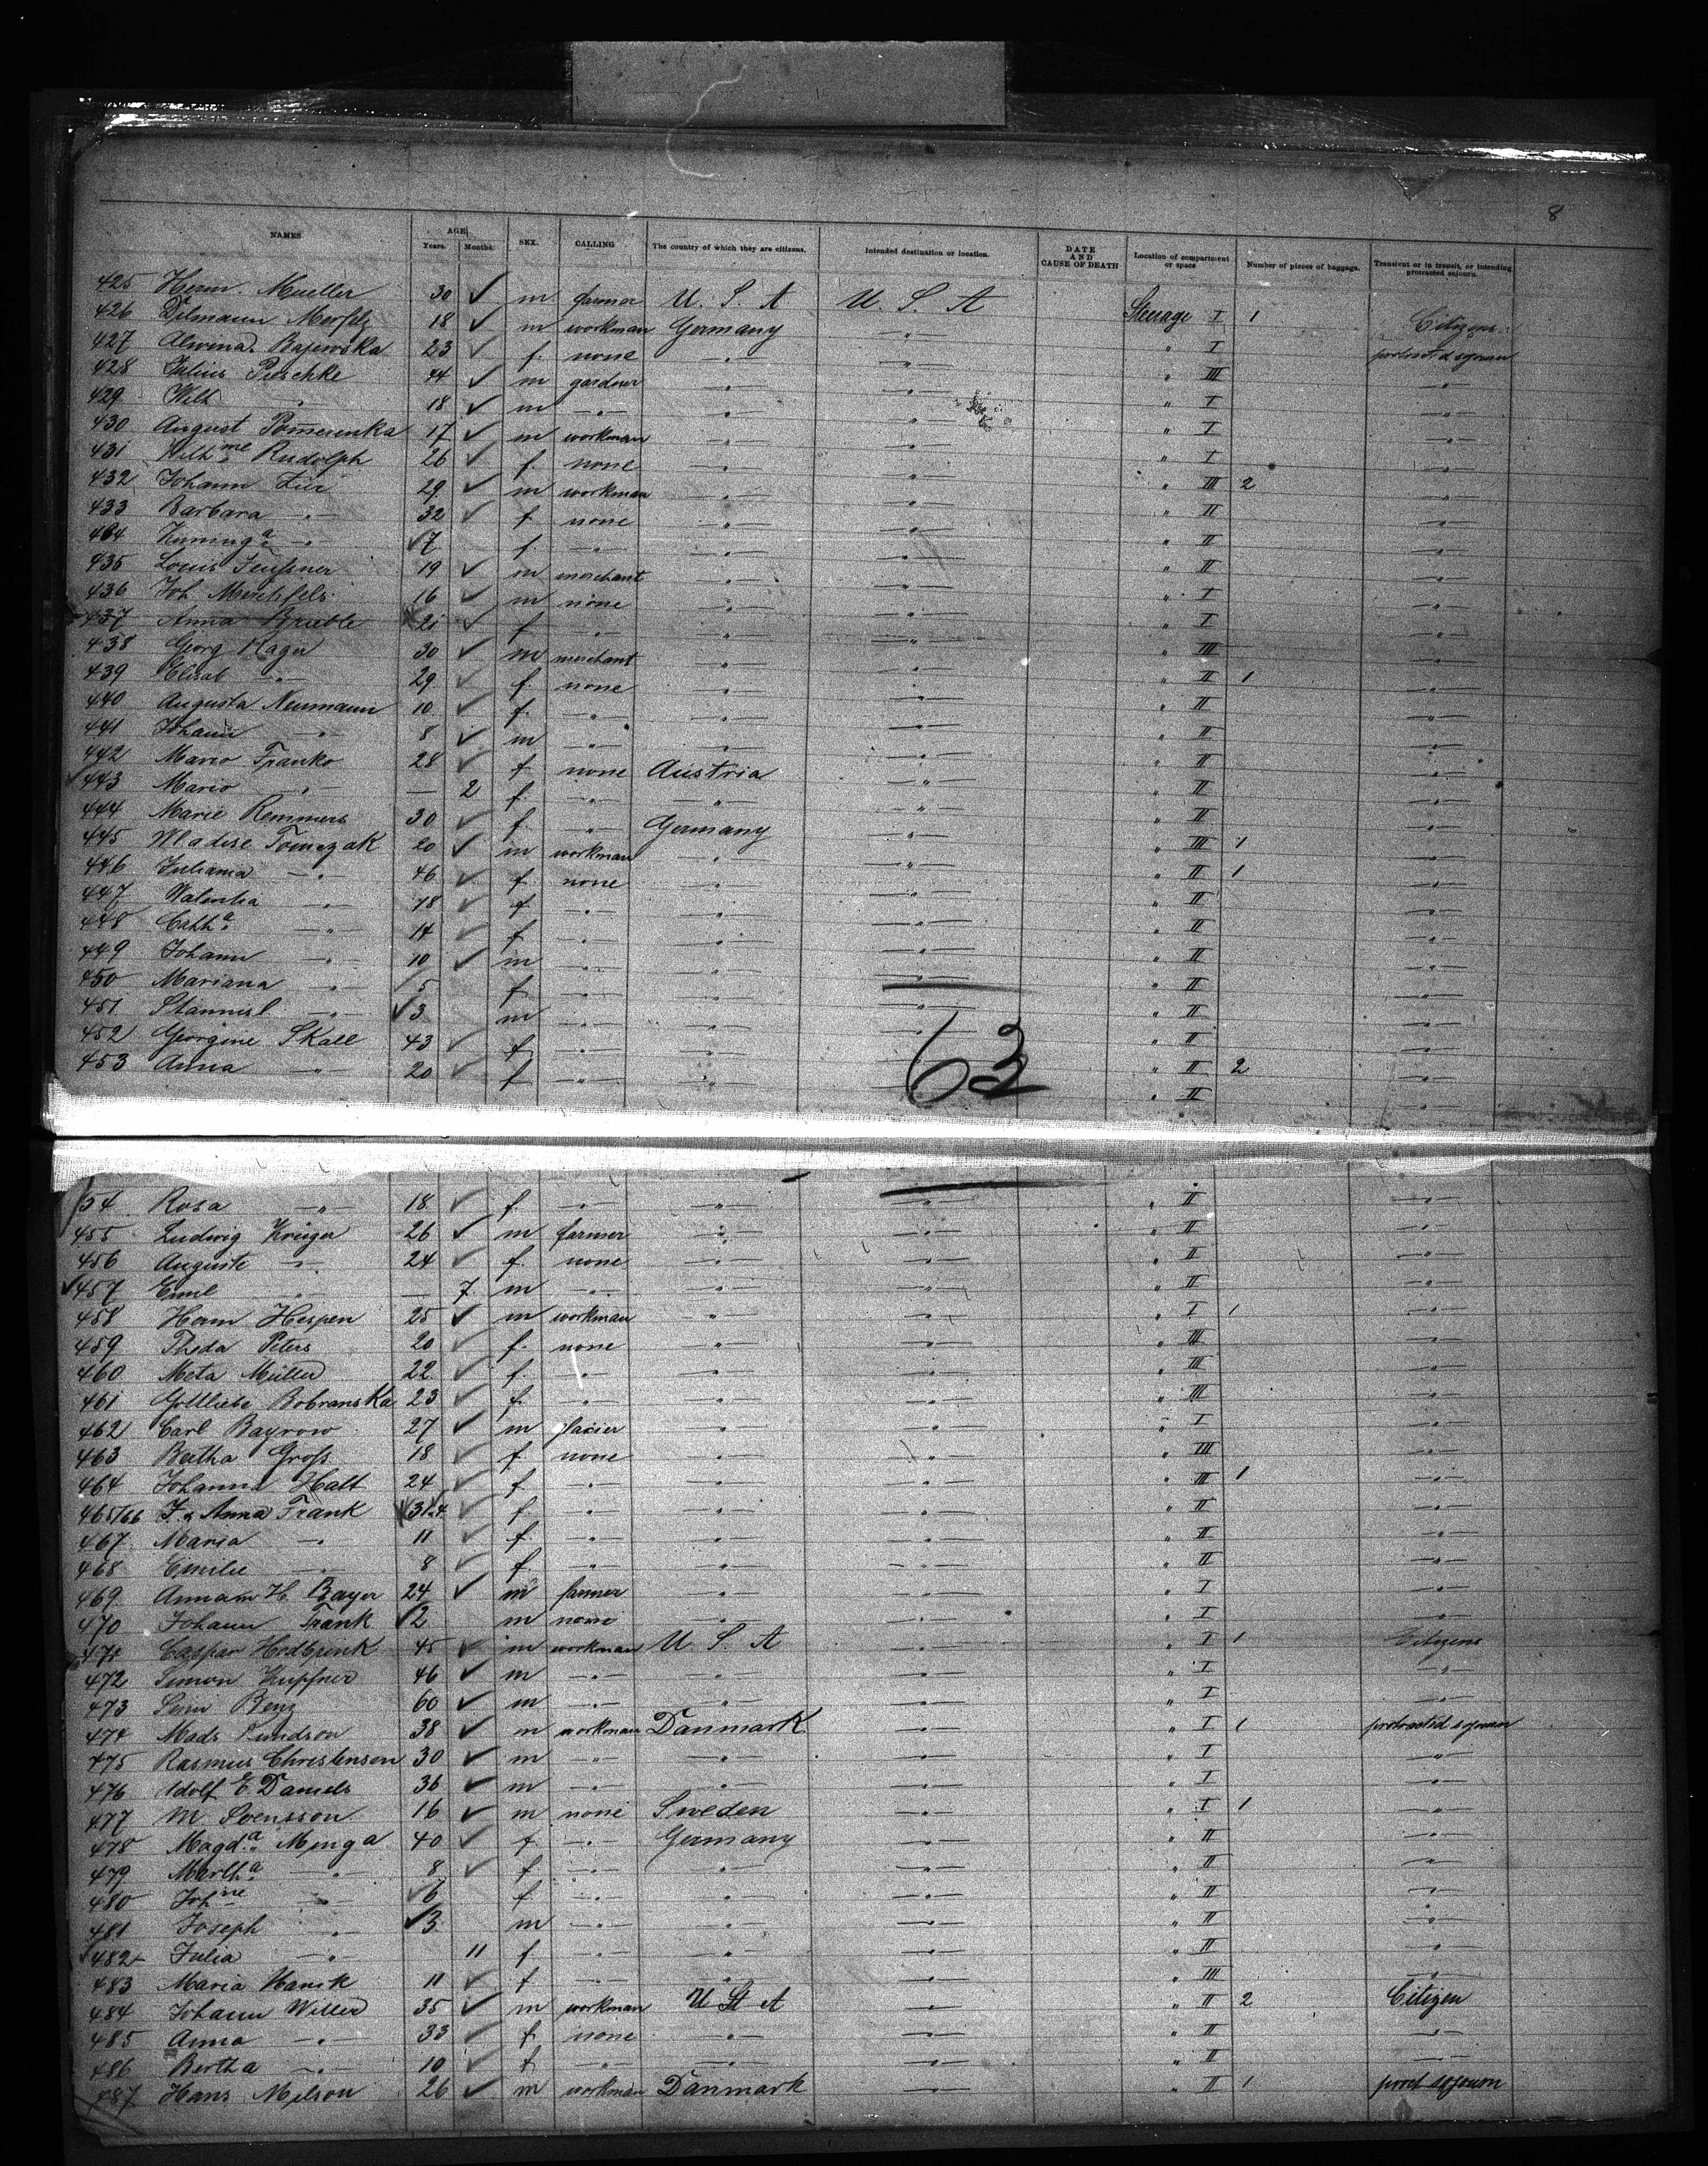 8
NAMES AGE Years. Months. SEX. CALLING The country of which they are citizens. Intended destination or location. DATE AND CAUSE OF DEATH Location of compartment or space Number of pieces of baggage. Transient or in transit, or intending protracted sojourn.
425 Herm. Mueller 30 ✓ m farmer U. S. A U. S. A Steerage I 1 Citizens
426 Tilmann 18 ✓ m workman Germany -"- " I protracted sojourn
427 Alwina Bajewska 23 ✓ f. none -"- -"- " III -"-
428 Julius Puschke 44 ✓ m gardner -"- -"- " I -"-
429 Wilh " 18 ✓ m -"- -"- -"- " I -"-
430 August Pomerenka 17 ✓ m workman -"- -"- " I -"-
431 Wilhme Rudolph 26 ✓ f. none -"- -"- " III 2 -"-
432 Johann 29 ✓ m workman -"- -"- " II -"-
433 Barbara -"- 32 ✓ f none -"- -"- " II -"-
434 -"- ✓7 f. -"- -"- -"- " II -"-
435 Louis 19 ✓ m merchant -"- -"- " I -"-
436 Joh. 16 ✓ m none -"- -"- " I -"-
437 Anna 21 ✓ f -"- -"- -"- " III -"-
438 Georg Hager 30 ✓ m merchant -"- -"- " II 1 -"-
439 Elisab -"- 29 ✓ f. none -"- -"- " II -"-
440 Augusta Neumann 10 ✓ f. -"- -"- -"- " II -"-
441 Johann -"- 8 ✓ m -"- -"- -"- " II -"-
442 Mario Franko 28 ✓ f none Austria -"- " II -"-
✓443 Mario -"- — 2 f. -"- -"- -"- " II -"-
444 Marie Remmers 30 ✓ f. -"- Germany -"- " III 1 -"-
445 Wladisl Tomczak 20 ✓ m workman -"- -"- " II 1 -"-
446 Juliana -"- 46 ✓ f none -"- -"- " II -"-
447 Walentia -"- 18 ✓ f -"- -"- -"- " II -"-
448 Catha -"- 14 ✓ f -"- -"- -"- " II -"-
449 Johann -"- 10 ✓ m -"- -"- -"- " II -"-
450 Mariana -"- 5 f -"- -"- -"- " II -"-
451 Stannisl -"- ✓3 m -"- -"- -"- " II -"-
452 Georgine Skall 43 ✓ f -"- -"- -"- " II 2 -"-
453 Anna -"- 20 ✓ f -"- -"- -"- " II -"-
63
54 Rosa -"- 18 ✓ f. -"- -"- -"- " II -"-
455 Ludwig Krüger 26 ✓ m farmer -"- -"- " II -"-
456 Auguste -"- 24 ✓ f. none -"- -"- " II -"-
✓457 Emil -"- — 7. m -"- -"- -"- " II -"-
458 Herm Hespen 25 ✓ m workman -"- -"- " I 1 -"-
459 Theda Peters 20 ✓ f. none -"- -"- " III -"-
460 Meta Müller 22. ✓ f. -"- -"- -"- " III -"-
461 Gottliebe Bobranska 23 ✓ f. -"- -"- -"- " III -"-
462 Carl Bayrow 27 ✓ m -"- -"- " I -"-
463 Bertha Groß 18 ✓ f none -"- -"- " III -"-
464 Johanna Halt 24 ✓ f -"- -"- -"- " III 1 -"-
465/66 F. & Anna Frank 31.4 ✓ f. -"- -"- -"- " II -"-
467 Maria -"- 11 ✓ f. -"- -"- -"- " II -"-
468 Emilie " 8 ✓ f. -"- -"- -"- " II -"-
469 H. Bayer 24 ✓ m farmer -"- -"- " I -"-
470 Johann Frank ✓2 m none -"- -"- " I -"-
471 Caspar 45 ✓ m workman U. S. A -"- " I 1 Citizens
472 Simon Kupfner 46 ✓ m -"- -"- -"- " I -"-
473 Benz 60 ✓ m -"- -"- -"- " I -"-
474 Mads Kundson 38 ✓ m workman Danmark -"- " I 1 protracted sojourn
475 Rasmus Christensen 30 ✓ m -"- -"- -"- " I -"-
476 Adolf E Daniels 36 ✓ m -"- -"- -"- " I -"-
477 M Svensson 16 ✓ m none Sweden -"- " I 1 -"-
478 Magda Minga 40 ✓ f. -"- Germany -"- " II -"-
479 Martha -"- 8 ✓ f -"- -"- -"- " II -"-
480 Johne -"- ✓6 f -"- -"- -"- " II -"-
481 Joseph -"- ✓3 m -"- -"- -"- " II -"-
482 Julia -"- 11 f -"- -"- -"- " II -"-
483 Maria Hanik 11 ✓ f -"- -"- -"- " III -"-
484 Johann Willer 35 ✓ m workman U St A -"- " II 2 Citizen
485 Anna -"- 33 ✓ f none -"- -"- " II -"-
486 Bertha -"- 10 ✓ f -"- -"- -"- " II -"-
487 Hans Milson 26 ✓ m workman Danmark -"- " II 1 prot sojourn